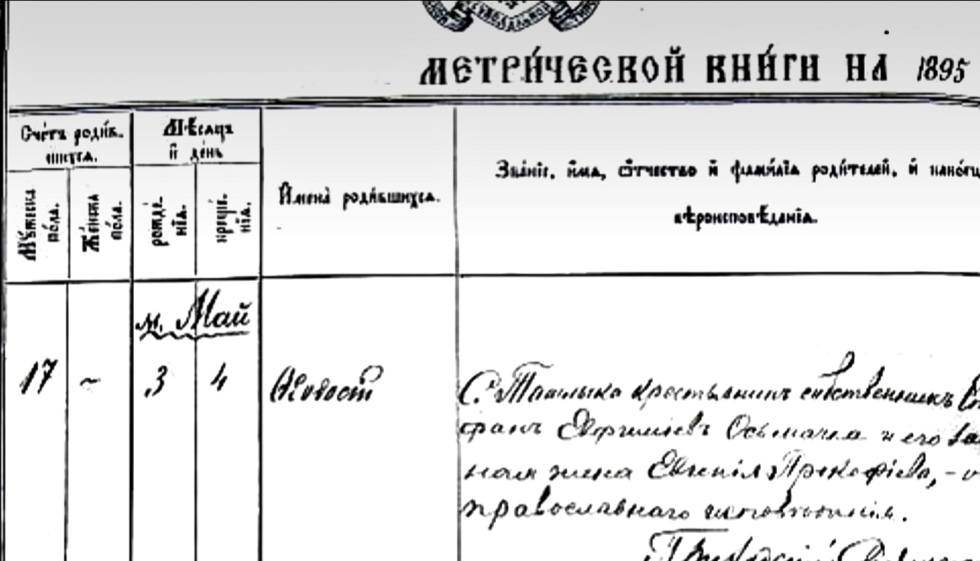 МЕТРИ́ЧЕСКОЙ КНИ́ГИ НА 1895
Сче́тъ роди́в-
шихся.
Мѣсяцъ
и҆ де́нь
И҆мена̀ роди́вшихся.
Зва́нїе, и҆́мѧ, ѻ҆́тчество и҆ фамилїѧ роди́телей, и҆
вѣроисповѣ́данїѧ.
Мꙋ́жеска
по́ла.
Же́нска
по́ла.
рожде́-
нїѧ.
креще́-
нїѧ.
м. Май
17 ~ 3 4
С. Ташлыка крестьянинъ собственникъ
фанъ Евфимиевъ Осьмачка и его
ная жена Евгенія Прокофіева, -
православнаго исповѣданія.